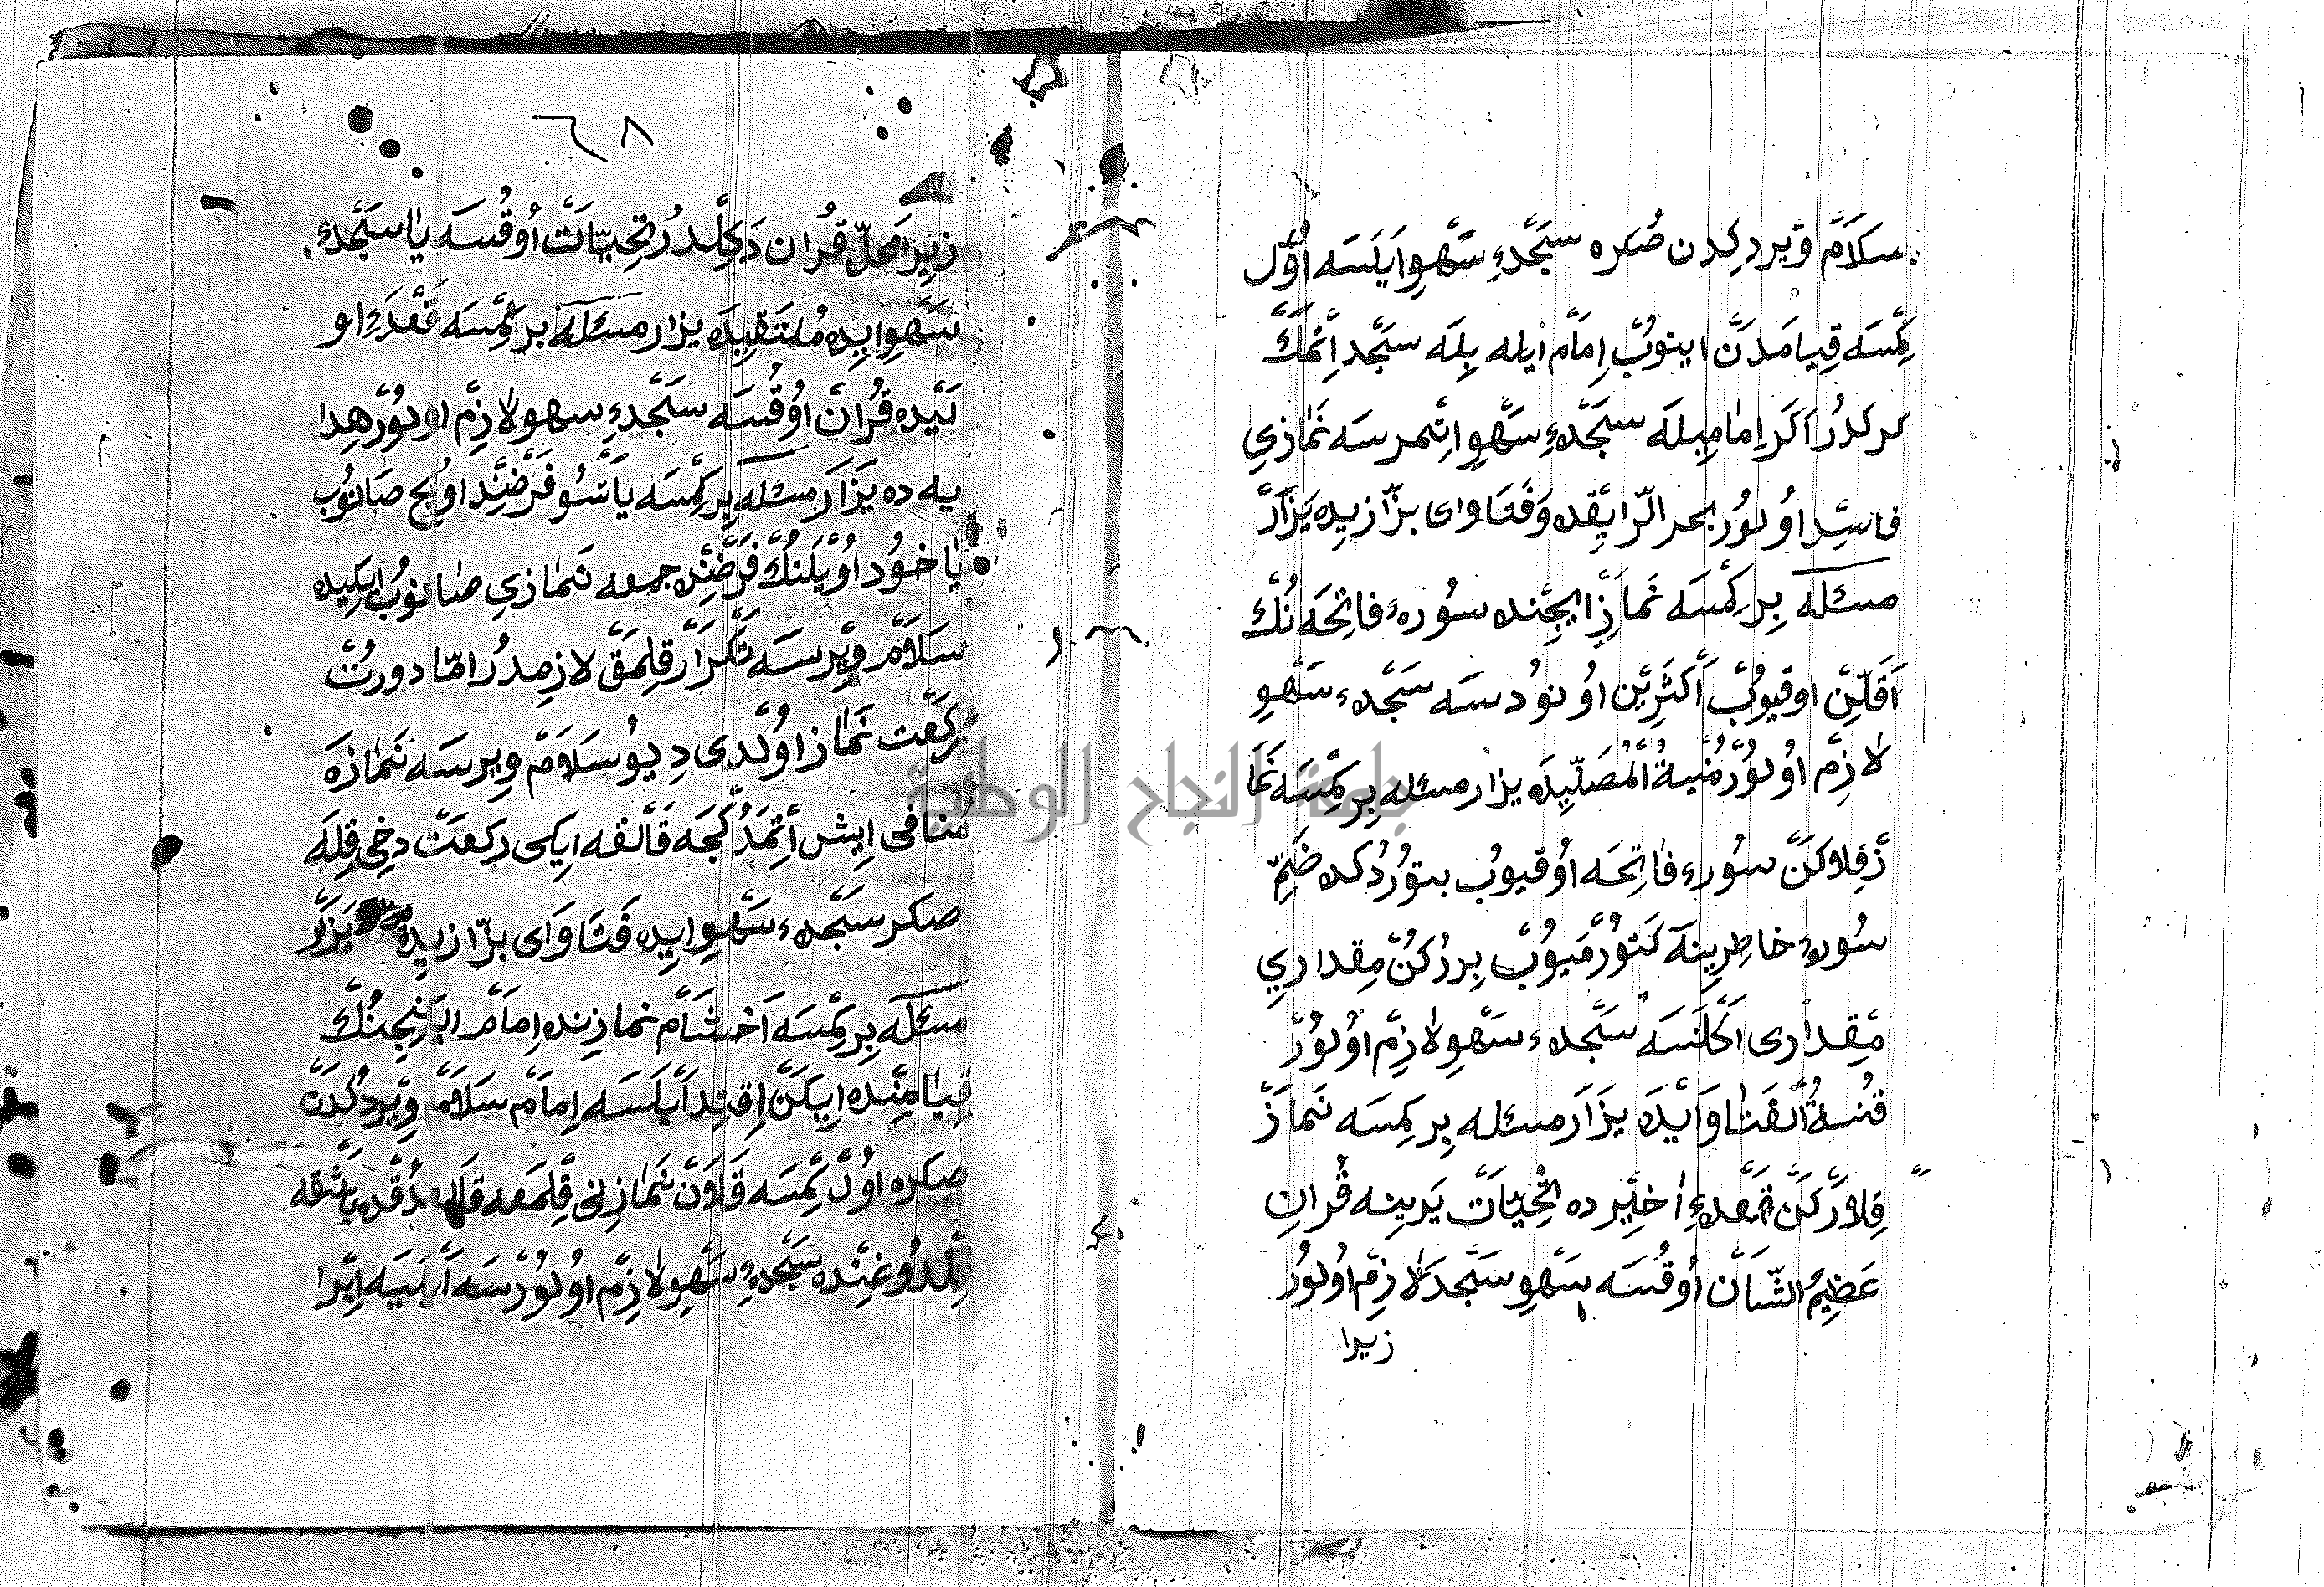 سلام ویردکدن صکره سجدۀ سهو ایلسه اول
کمسه قیامدن اینوب امام ایله بله سجد اتمك
کرکدر اکر امامیله سجدۀ سهو اتمرسه نمازی
فاسد اولور بحر الرایقده وفتاوای بزازیده یزار
مسئله بر کمسه نماز ایچنده سورۀ فاتحه نك
اقلین اوقیوب اکثرین اونودسه سجدۀ سهو
لازم اولور منیة المصلیده یزار مسئله بر کمسه نما
ز قلارکن سورۀ فاتحه اوقیوب بتوردکده ضم
سوره خاطرینه کتورمیوب بر رکن مقداری
مقداری اکلنسه سجدۀ سهو لازم اولور
قنیة الفتاوایده یزار مسئله بر کمسه نماز
قلارکن قعدۀ اخیرده تحیات یرینه قران
عظیم الشان اوقسه سهو سجده لازم اولور
زیرا
٦٨
زیرا محل قران دکلدر تحیات اوقسه یا سجدۀ
سهو ایده ملتقیده یزار مسئله بر کمسه قعدۀ او
لیده قران اوقسه سجدۀ سهو لازم اولور هدا
یه ده یزار مسئله بر کمسه یاتسو فرضند اوچ صانوب
یاخود اویلنك فرضنده جمعه نمازی صانوب ایکیده
سلام ویرسه تکرار قلمق لازمدر اما دورت
رکعت نماز اولدی دیو سلام ویرسه نمازه
منافی ایش اتمدکجه قالقه ایکی رکعت دخی قله
صکر سجدۀ سهو ایده فتاوای بزازیده یزار
مسئله بر کمسه اخشام نمازنده امام برنجنك
قیامنده ایکن اقتدا ایلسه امام سلام ویردکدن
صکره اول کمسه قلان نمازنی قلمغه قالدقده یاشقه
اولدوغنده سجدۀ سهو لازم اولورسه ابیه ایرا